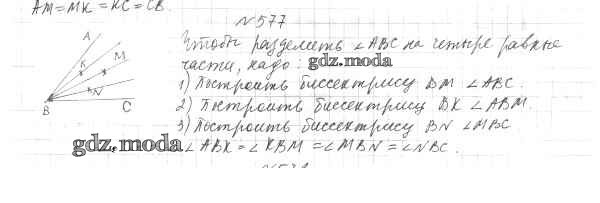 AM = MK = KC = CB.
№577
Чтобы разделить ∠ABC на четыре равные
части, надо:
gdz.moda
1) Построить биссектрису BM ∠ABC.
2) Построить биссектрису BK ∠ABM.
3) Построить биссектрису BN ∠MBC
∠ABK = ∠KBM = ∠MBN = ∠NBC.
gdz.moda
A
K
M
N
B
C